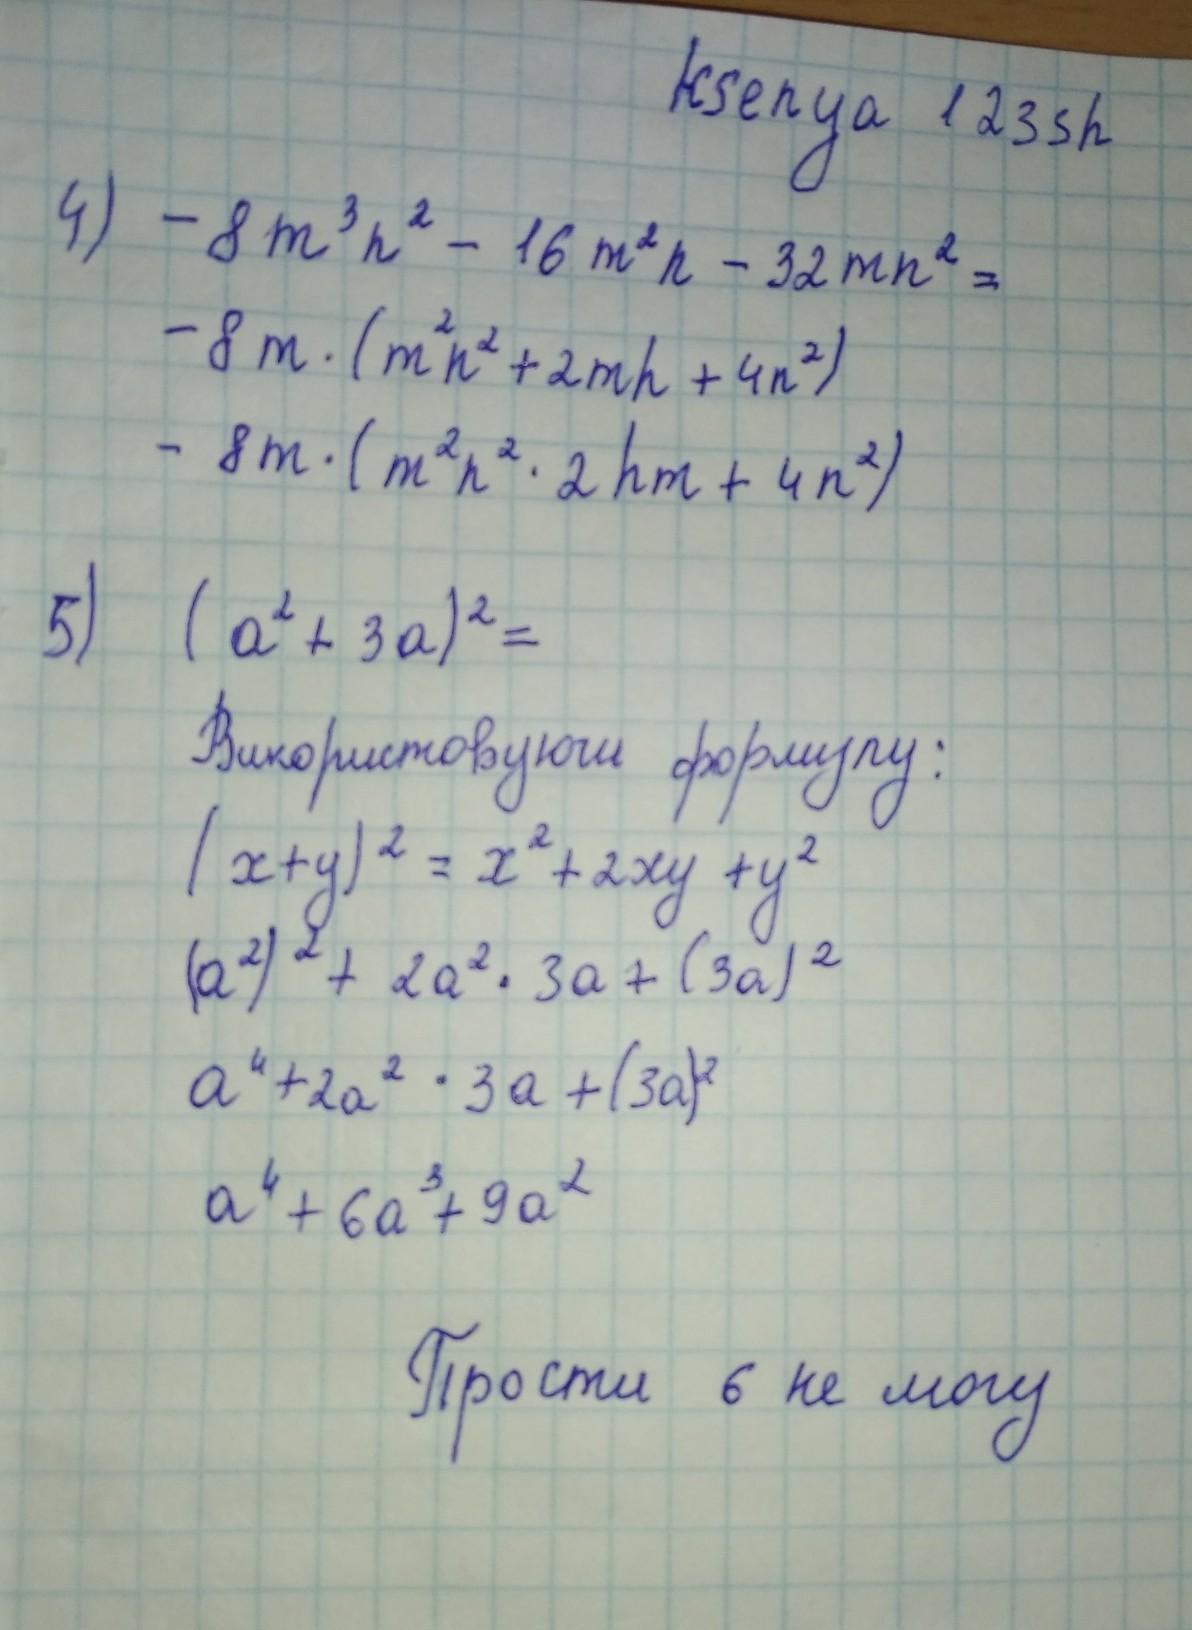 Ksenya 123sh
4) -8m³n² - 16m²n - 32mn² =
-8m·(m²n² + 2mn + 4n²)
- 8m·(m²n² · 2nm + 4n²)
5) (a² + 3a)² =
Використовуючи формулу:
(x+y)² = x² + 2xy + y²
(a²)² + 2a² · 3a + (3a)²
a⁴ + 2a² · 3a + (3a)²
a⁴ + 6a³ + 9a²
Прости 6 не могу